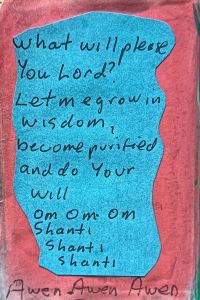 What will please
You Lord?
Let me grow in
wisdom,
become purified
and do Your
will
Om Om Om
Shanti
Shanti
Shanti
Awen Awen Awen